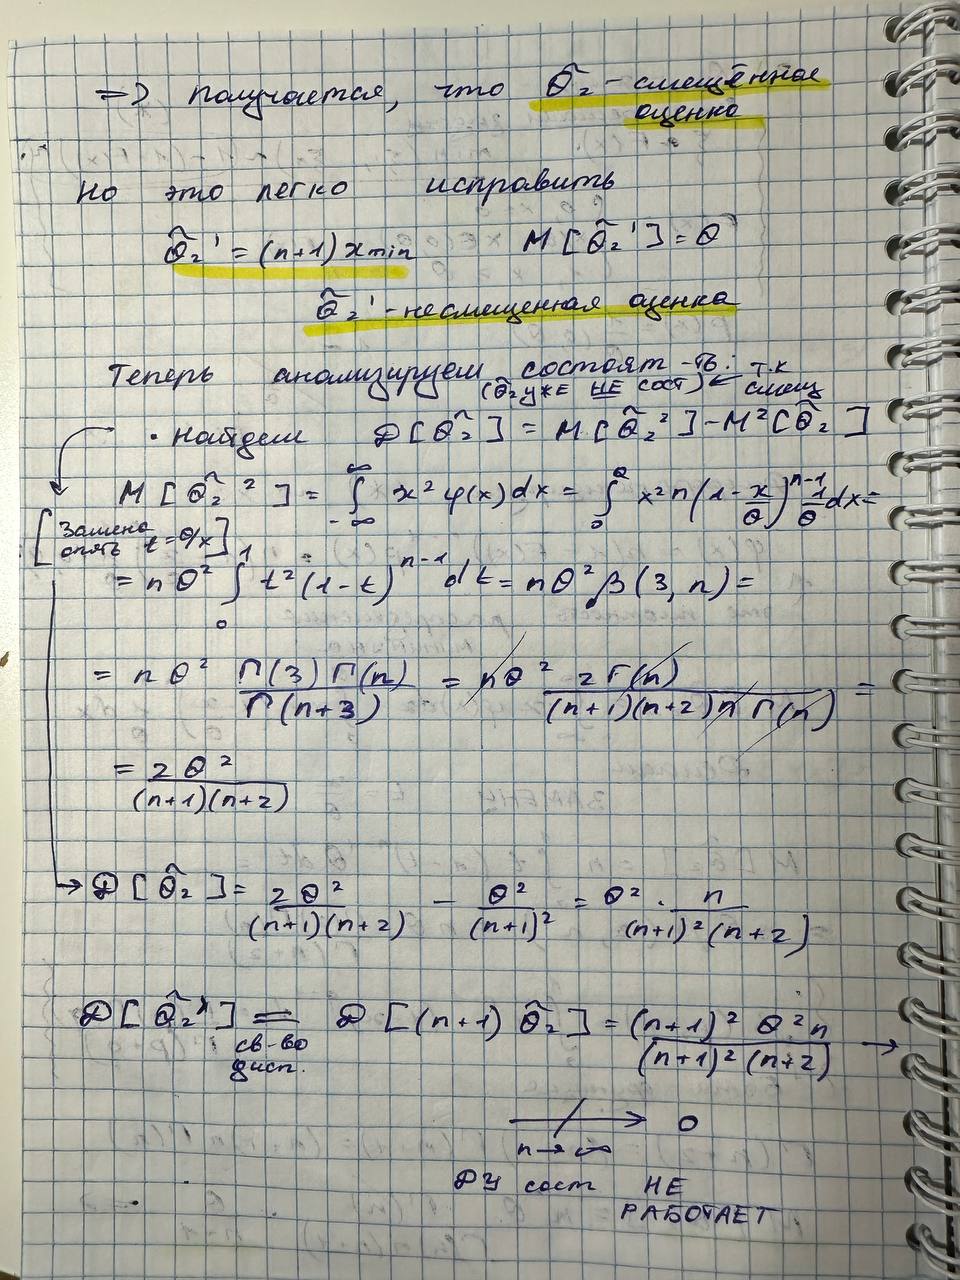 => получается, что θ̂₂ - смещённая
оценка
Но это легко исправить
θ̂₂' = (n+1) xmin M[θ̂₂'] = θ
θ̂₂' - несмещенная оценка
Теперь анализируем состоят-ть:
(θ̂₂ уже НЕ сост) ← т.к смещ
• Найдем D[θ̂₂] = M[θ̂₂²] - M²[θ̂₂]
M[θ̂₂²] = ∫_{-∞}^{∞} x² φ(x) dx = ∫_0^θ x² n (1 - x/θ)^{n-1} 1/θ dx =
[Замена опять t = θ/x]
= n θ² ∫_0^1 t² (1-t)^{n-1} dt = n θ² β(3, n) =
= n θ² Γ(3) Γ(n) / Γ(n+3) = n θ² 2 Γ(n) / (n+1)(n+2) n Γ(n) =
= 2 θ² / (n+1)(n+2)
→ D[θ̂₂] = 2 θ² / (n+1)(n+2) - θ² / (n+1)² = θ² · n / (n+1)² (n+2)
D[θ̂₂'] = D[(n+1) θ̂₂] = (n+1)² θ² n / (n+1)² (n+2) →
св-во
дисп.
↛ 0
n→∞
ДУ сост НЕ
РАБОТАЕТ